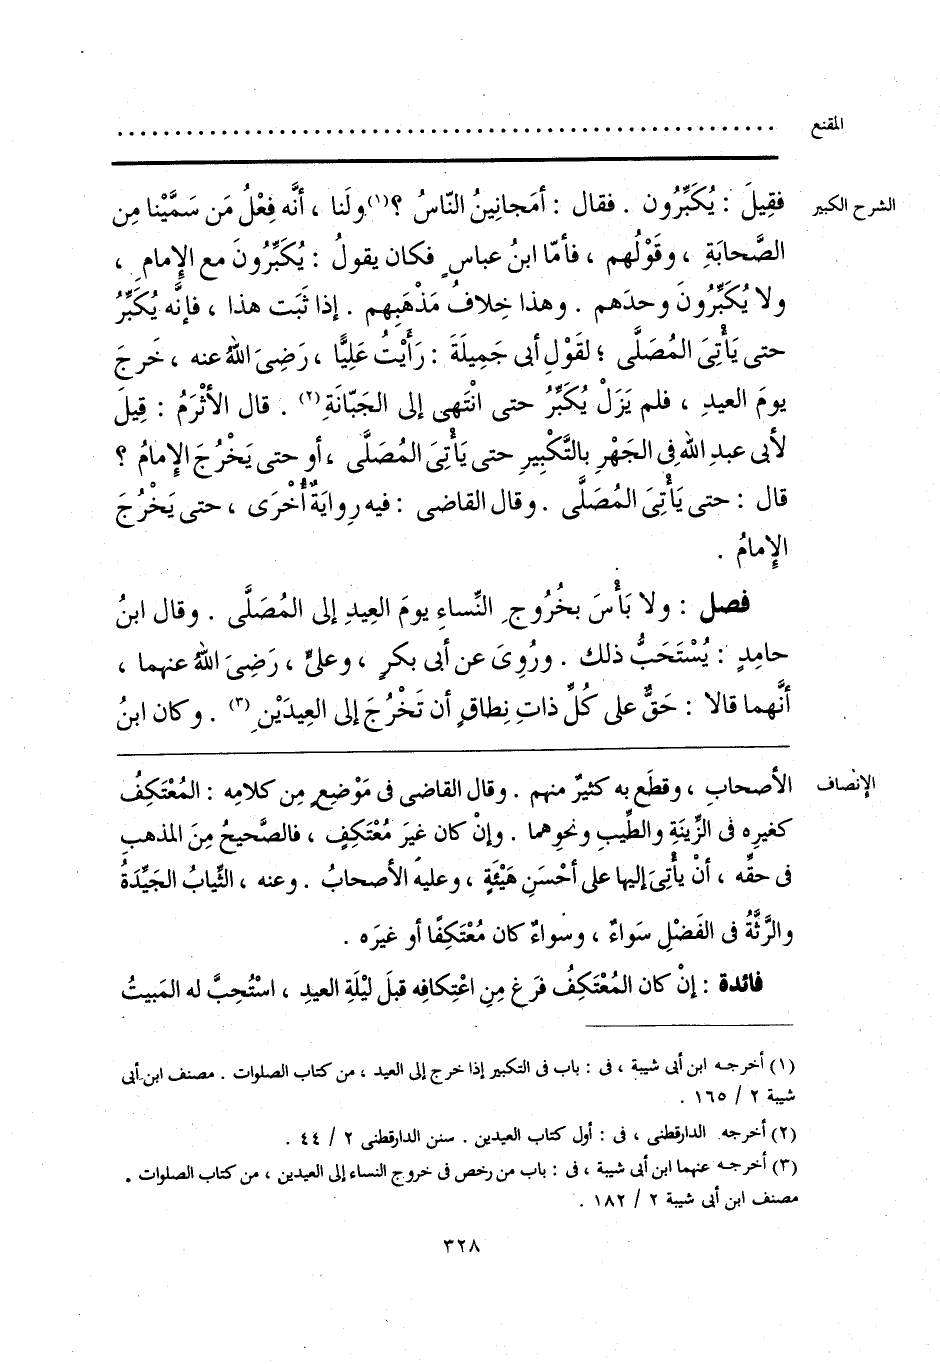 المقنع ............................................................
الشرح الكبير فقِيلَ : يُكَبِّرُون . فقال : أمَجانِينُ النّاسُ ؟(١) ولَنا ، أنَّه فِعْلُ مَن سَمَّيْنا مِن
الصَّحابَةِ ، وقَوْلُهم ، فأمّا ابنُ عباسٍ فكان يقولُ : يُكَبِّرُونَ مع الإِمامِ ،
ولا يُكَبِّرُونَ وحدَهم . وهذا خِلافُ مَذْهَبِهم . إذا ثَبَت هذا ، فإنَّه يُكَبِّرُ
حتى يَأْتِىَ المُصَلَّى ؛ لقَوْلِ أبى جَمِيلَةَ : رَأَيْتُ عَلِيًّا ، رَضِىَ اللهُ عنه ، خَرجَ
يومَ العيدِ ، فلم يَزَلْ يُكَبِّرُ حتى انْتَهى إلى الجَبّانَةِ(٢) . قال الأثْرَمُ : قِيلَ
لأبى عبدِ اللهِ فى الجَهْرِ بالتَّكْبِيرِ حتى يَأْتِىَ المُصَلَّى ، أو حتى يَخْرُجَ الإِمامُ ؟
قال : حتى يَأْتِىَ المُصَلَّى . وقال القاضى : فيه رِوايَةٌ أُخْرَى ، حتى يَخْرُجَ
الإِمامُ .
فصل : ولا بَأْسَ بخُرُوجِ النِّساءِ يومَ العِيدِ إلى المُصَلَّى . وقال ابنُ
حامِدٍ : يُسْتَحَبُّ ذلك . ورُوِىَ عن أبى بكرٍ ، وعلىٍّ ، رَضِىَ اللهُ عنهما ،
أنَّهما قالا : حَقٌّ على كُلِّ ذاتِ نِطاقٍ أن تَخْرُجَ إلى العِيدَيْنِ(٣) . وكان ابنُ
الإنصاف الأصحابِ ، وقطَع به كثيرٌ منهم . وقال القاضى فى مَوْضِعٍ مِن كلامِه : المُعْتَكِفُ
كغيرِه فى الزِّينَةِ والطِّيبِ ونحوِهما . وإنْ كان غيرَ مُعْتَكِفٍ ، فالصَّحيحُ مِنَ المذهبِ
فى حقِّه ، أنْ يأْتِىَ إليها على أحْسَنِ هَيْئَةٍ ، وعليه الأصحابُ . وعنه ، الثِّيابُ الجَيِّدَةُ
والرَّثَّةُ فى الفَضْلِ سَواءٌ ، وسواءٌ كان مُعْتَكِفًا أو غيرَه .
فائدة : إنْ كان المُعْتَكِفُ فرَغ مِنِ اعْتِكافِه قبلَ ليْلَةِ العيدِ ، اسْتُحِبَّ له المَبيتُ
(١) أخرجه ابن أبى شيبة ، فى : باب فى التكبير إذا خرج إلى العيد ، من كتاب الصلوات . مصنف ابن أبى
شيبة ٢ / ١٦٥ .
(٢) أخرجه الدارقطنى ، فى : أول كتاب العيدين . سنن الدارقطنى ٢ / ٤٤ .
(٣) أخرجه عنهما ابن أبى شيبة ، فى : باب من رخص فى خروج النساء إلى العيدين ، من كتاب الصلوات .
مصنف ابن أبى شيبة ٢ / ١٨٢ .
٣٢٨